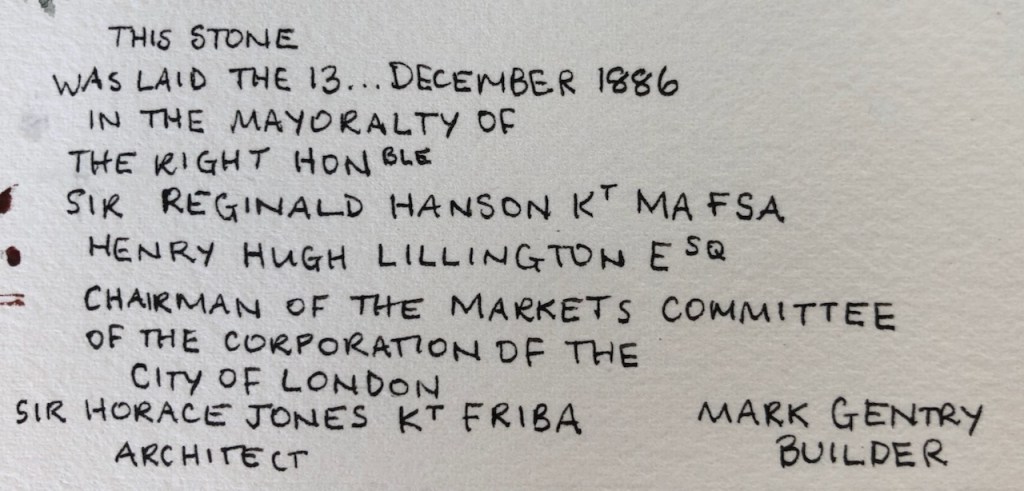 THIS STONE
WAS LAID THE 13... DECEMBER 1886
IN THE MAYORALTY OF
THE RIGHT HON BLE
SIR REGINALD HANSON KT MA FSA
HENRY HUGH LILLINGTON E SQ
CHAIRMAN OF THE MARKETS COMMITTEE
OF THE CORPORATION OF THE
CITY OF LONDON
SIR HORACE JONES KT FRIBA MARK GENTRY
ARCHITECT BUILDER